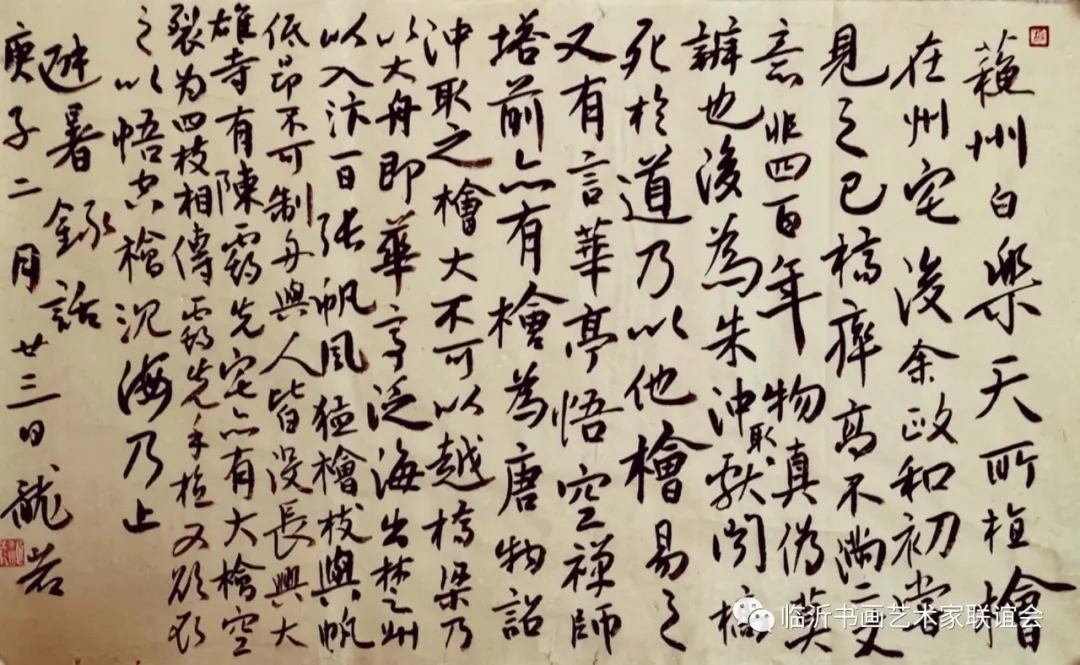 蘓州白樂天所植檜
在州宅後余政和初嘗
見之已槁瘁高不滿二丈
意非四百年物真偽莫
辯也後為朱沖取獻聞槁
死於道乃以他檜易之
又有言華亭悟空禪師
塔前亦有檜為唐物詔
沖取之檜大不可以越橋梁乃
以大舟即華亭泛海出楚州
以入汴一日張帆風猛檜枝與帆
低昂不可制舟與人皆没長興大
雄寺有陳霸先宅亦有大檜空
裂为四枝相傳霸先手植又欲取
之以悟空檜沉海乃止
避暑録話
庚子二月廿三日
临沂书画艺术家联谊会